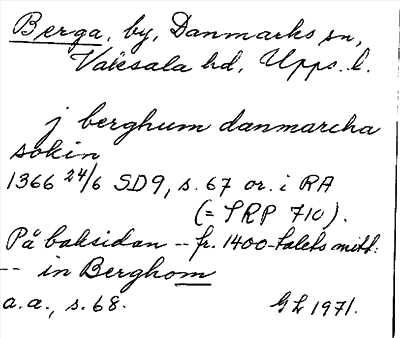 Berga, by, Danmarks sn,
Vaksala hd, Upps. l.
j berghum danmarcha
sokin
1366 24/6 SD9, s. 67 or. i RA
(= SRP 710).
På baksidan -- fr. 1400-talets mitt:
-- in Berghom
a.a., s. 68. GL 1971.